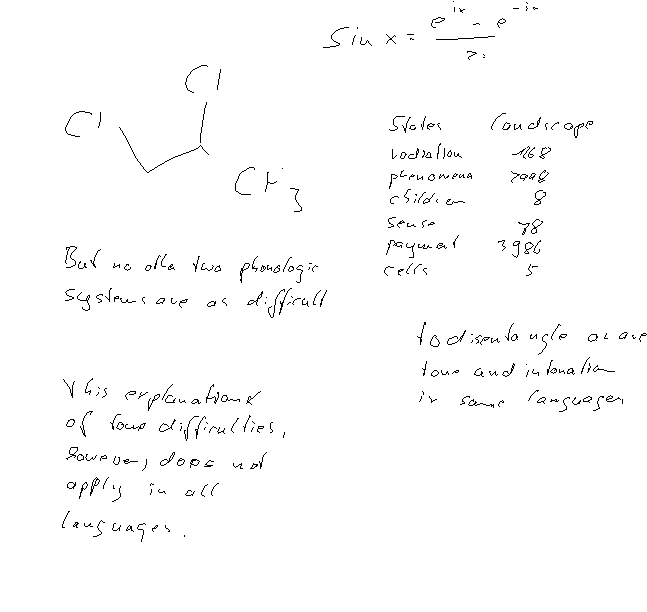 sin x = (e^{ix} - e^{-ix}) / 2i
Cl
Cl
CH3
States landscape
radiation 1268
phenomena 7998
children 8
sense 78
payment 3986
cells 5
But no other two phonologic
systems are as difficult
to disentangle as are
tone and intonation
in some languages
This explanations
of tone difficulties,
however, does not
apply in all
languages.